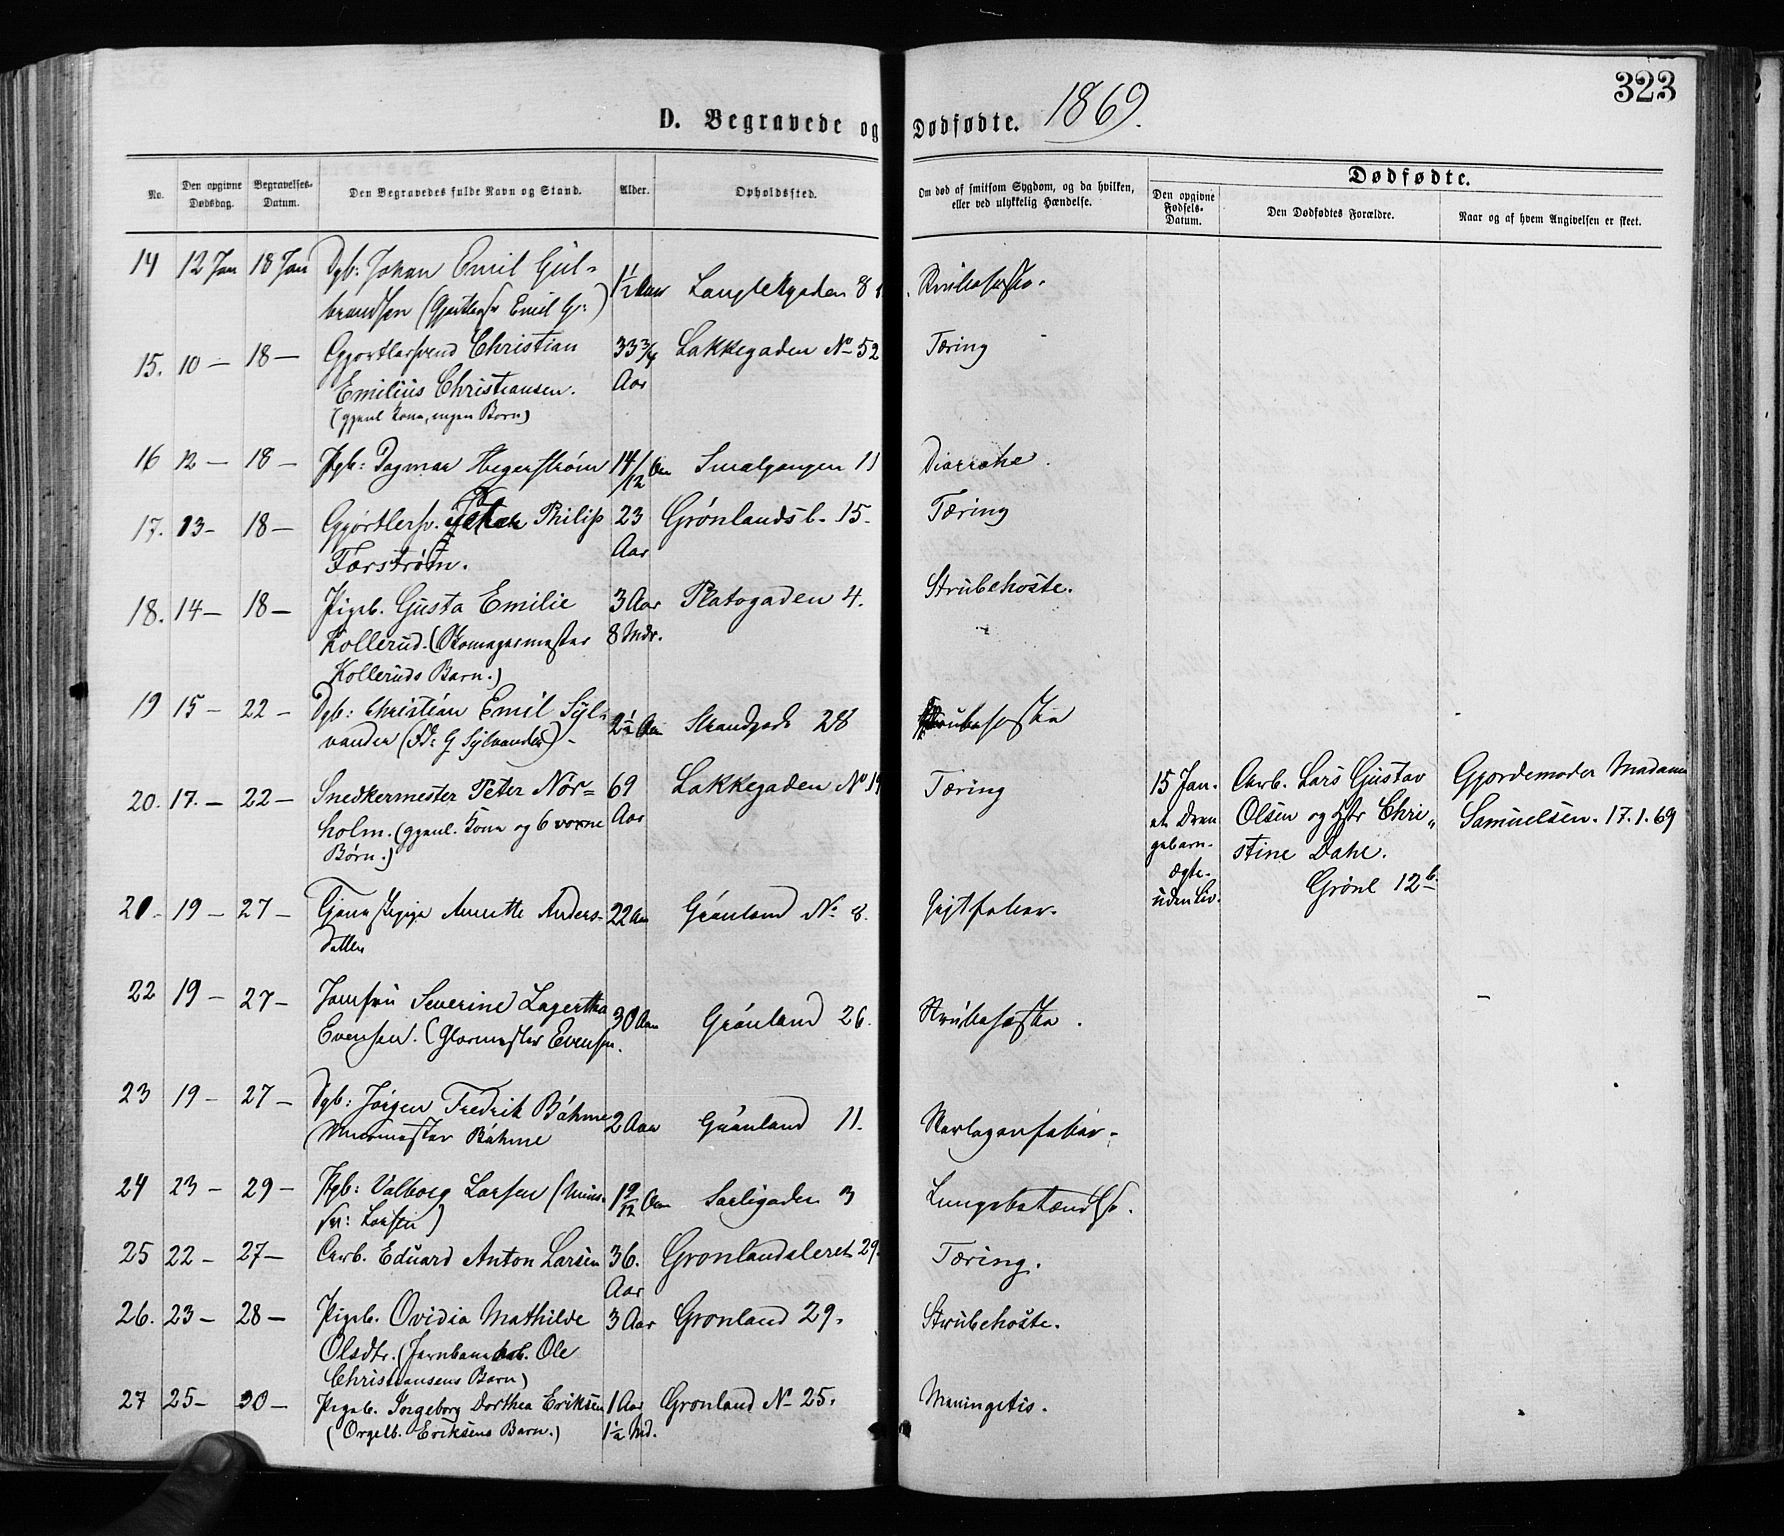 323
D. Begravede og Dødfødte. 1869.
No.
Den opgivne Dødsdag.
Begravelses-Datum.
Den Begravedes fulde Navn og Stand.
Alder.
Opholdssted.
Om død af smitsom Sygdom, og da hvilken, eller ved ulykkelig Hændelse.
Dødfødte.
Den opgivne Fødsels-Datum.
Den Dødfødtes Forældre.
Naar og af hvem Angivelsen er skeet.
14 12 Jan 18 Jan Dgb: Johan Emil Gul-
brandsen (Gjørtlersv Emil G:) 1 1/2 Aar
15. 10 — 18 — Gjørtlersvend Christian 33 3/4 Lakkegaden No 52 Tæring
Emilius Christiansen. Aar
(gjenl Kone, ingen Børn)
16 12 — 18 — Pgb: Dagmar Hegerstrøm 14/12 Aar Smalgangen 11 Diarrohe.
17. 13 — 18 — Gjørtlersv. Peter Philip 23 Grønlandsl. 15. Tæring
Forstrøm. Aar
18. 14 — 18 — Pigeb. Gusta Emilie 3 Aar Platogaden 4. Strubehoste.
Kollerud. (Skomagermester 8 Mdr.
Kolleruds Barn.)
19 15 — 22 — Dgb: Christian Emil Syl-
vander (F: G Sylvander) - 2 1/2 Aar Strandgade 28 Strubehoste
20. 17. — 22 — Snedkermester Peter Nor= 69 Lakkegaden No 19 Tæring
holm. (gjenl. Kone og 6 voxne Aar
Børn.)
15 Jan.
et Dren
gebarn.
Ægte.
uden Liv.
Arb. Lars Gustav
Olsen og Hstr Chri„
stine Dahl.
Grønl 12 b.
Gjordemoder Madam
Samuelsen. 17.1.69
21. 19 — 27 — Tjenestepige Anette Anders-
datter 22 Aar Grønland No. 8.
22 19 — 27 — Jomfru Severine Lagertha
Evensen. (Glarmester Evensen. 30 Aar Grønland 26. Strubehoste.
23 19 — 27 — Dgb: Jørgen Fredrik Bøhme
(Murmester Bøhme 2 Aar Grønland 11. Skarlagenfeber.
24 23 — 29 — Pgb: Valborg Larsen (Muur-
sv: Larsen) 1 9/12 Aar 3 Lungebetændelse.
25 22 — 27 — Arb. Eduard Anton Larsen 36. Grønlandsleret 29. Tæring.
Aar
26. 23 — 28 — Pigeb. Ovidia Mathilde 3 Aar Grønland 29. Strubehoste.
Olsdtr. (Jernbanearb. Ole
Christiansens Barn)
27 25 — 30 — Pigeb. Ingeborg Dorthea Eriksen 1 Aar Grønland No 25. Meningetis.
(Orgelb. Eriksens Barn.) 1 1/2 Md.